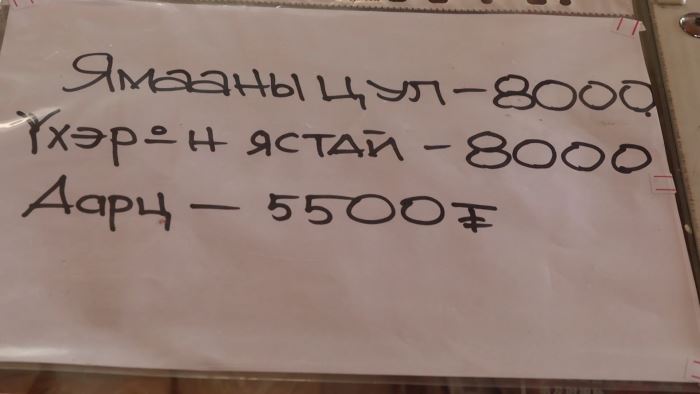 Ямааны цул - 8000
Үхэрºн ястай - 8000
Дарц - 5500₮